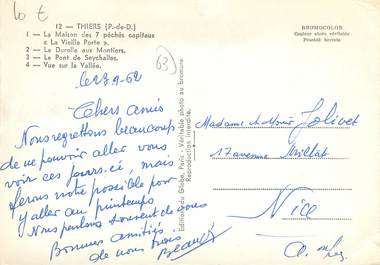 10 €
12 - THIERS (P.-de-D.)
1 - La Maison des 7 péchés capitaux
« La Vieille Porte »
2 - La Durolle aux Moutiers.
3 - Le Pont de Seychalles.
4 - Vue sur la Vallée.
BROMOCOLOR
Couleur photo véritable
Procédé breveté
63
le 29-9-62
Chers amis
Nous regrettons beaucoup
de ne pouvoir aller vous
voir ces jours-ci, mais
ferons notre possible pour
y aller au printemps
Nous parlons souvent de vous
Bonnes amitiés
de nous trois
Editions du Globe, Paris - Véritable photo au bromure
Reproduction interdite.
Madame et Monsieur Jolivet
17 avenue
Nice